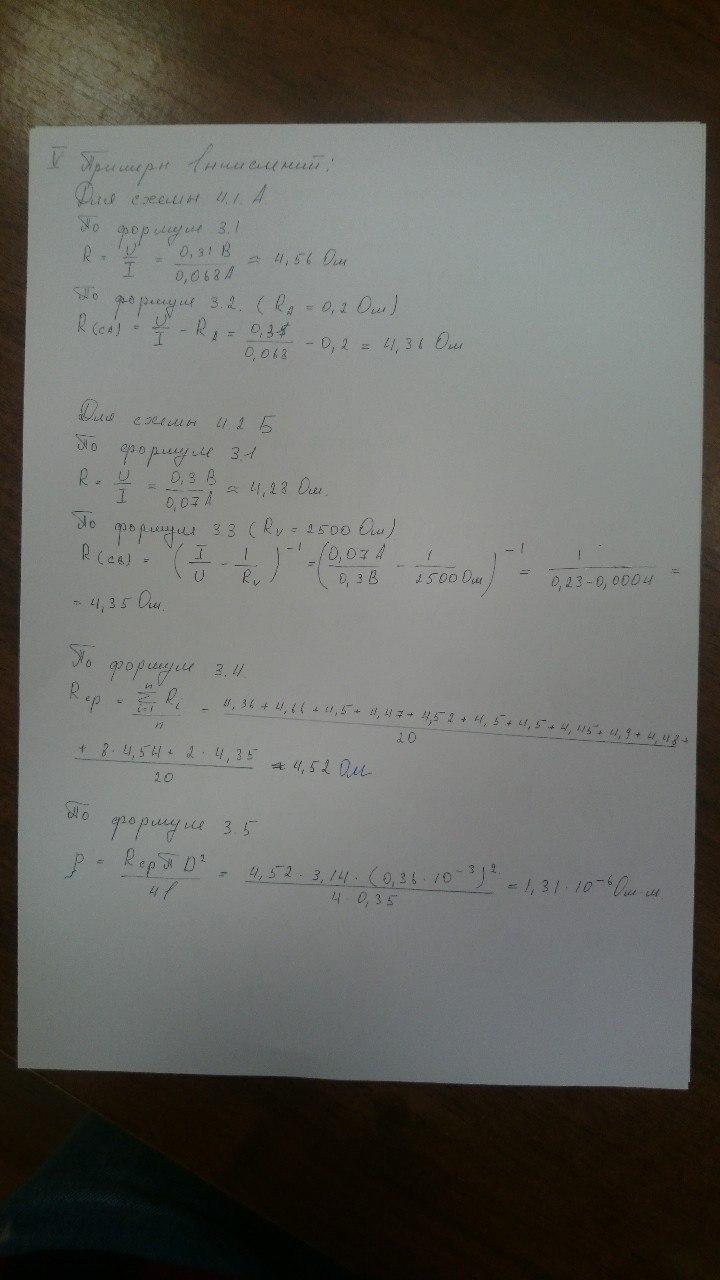 V Примеры вычислений:
Для схемы 4.1. А
По формуле 3.1
R = U/I = 0,31 В/0,068 А ≈ 4,56 Ом
По формуле 3.2. (R_A = 0,2 Ом)
R(СА) = U/I - R_A = 0,31/0,068 - 0,2 = 4,36 Ом
Для схемы 4.2 Б
По формуле 3.1
R = U/I = 0,3 В/0,07 А ≈ 4,28 Ом.
По формуле 3.3 (R_V = 2500 Ом)
R(СВ) = (I/U - 1/R_V)^-1 = (0,07 А/0,3 В - 1/2500 Ом)^-1 = 1/(0,23-0,0004) =
= 4,35 Ом.
По формуле 3.4.
R_ср = ∑_{i=1}^{n} R_i/n = 4,36 + 4,66 + 4,5 + 4,47 + 4,52 + 4,5 + 4,5 + 4,45 + 4,9 + 4,48 +/20
+ 8·4,54 + 2·4,35/20 ≈ 4,52 Ом
По формуле 3.5
ρ = R_ср π D²/4l = 4,52 · 3,14 · (0,36 · 10^-3)²/4 · 0,35 = 1,31 · 10^-6 Ом·м.